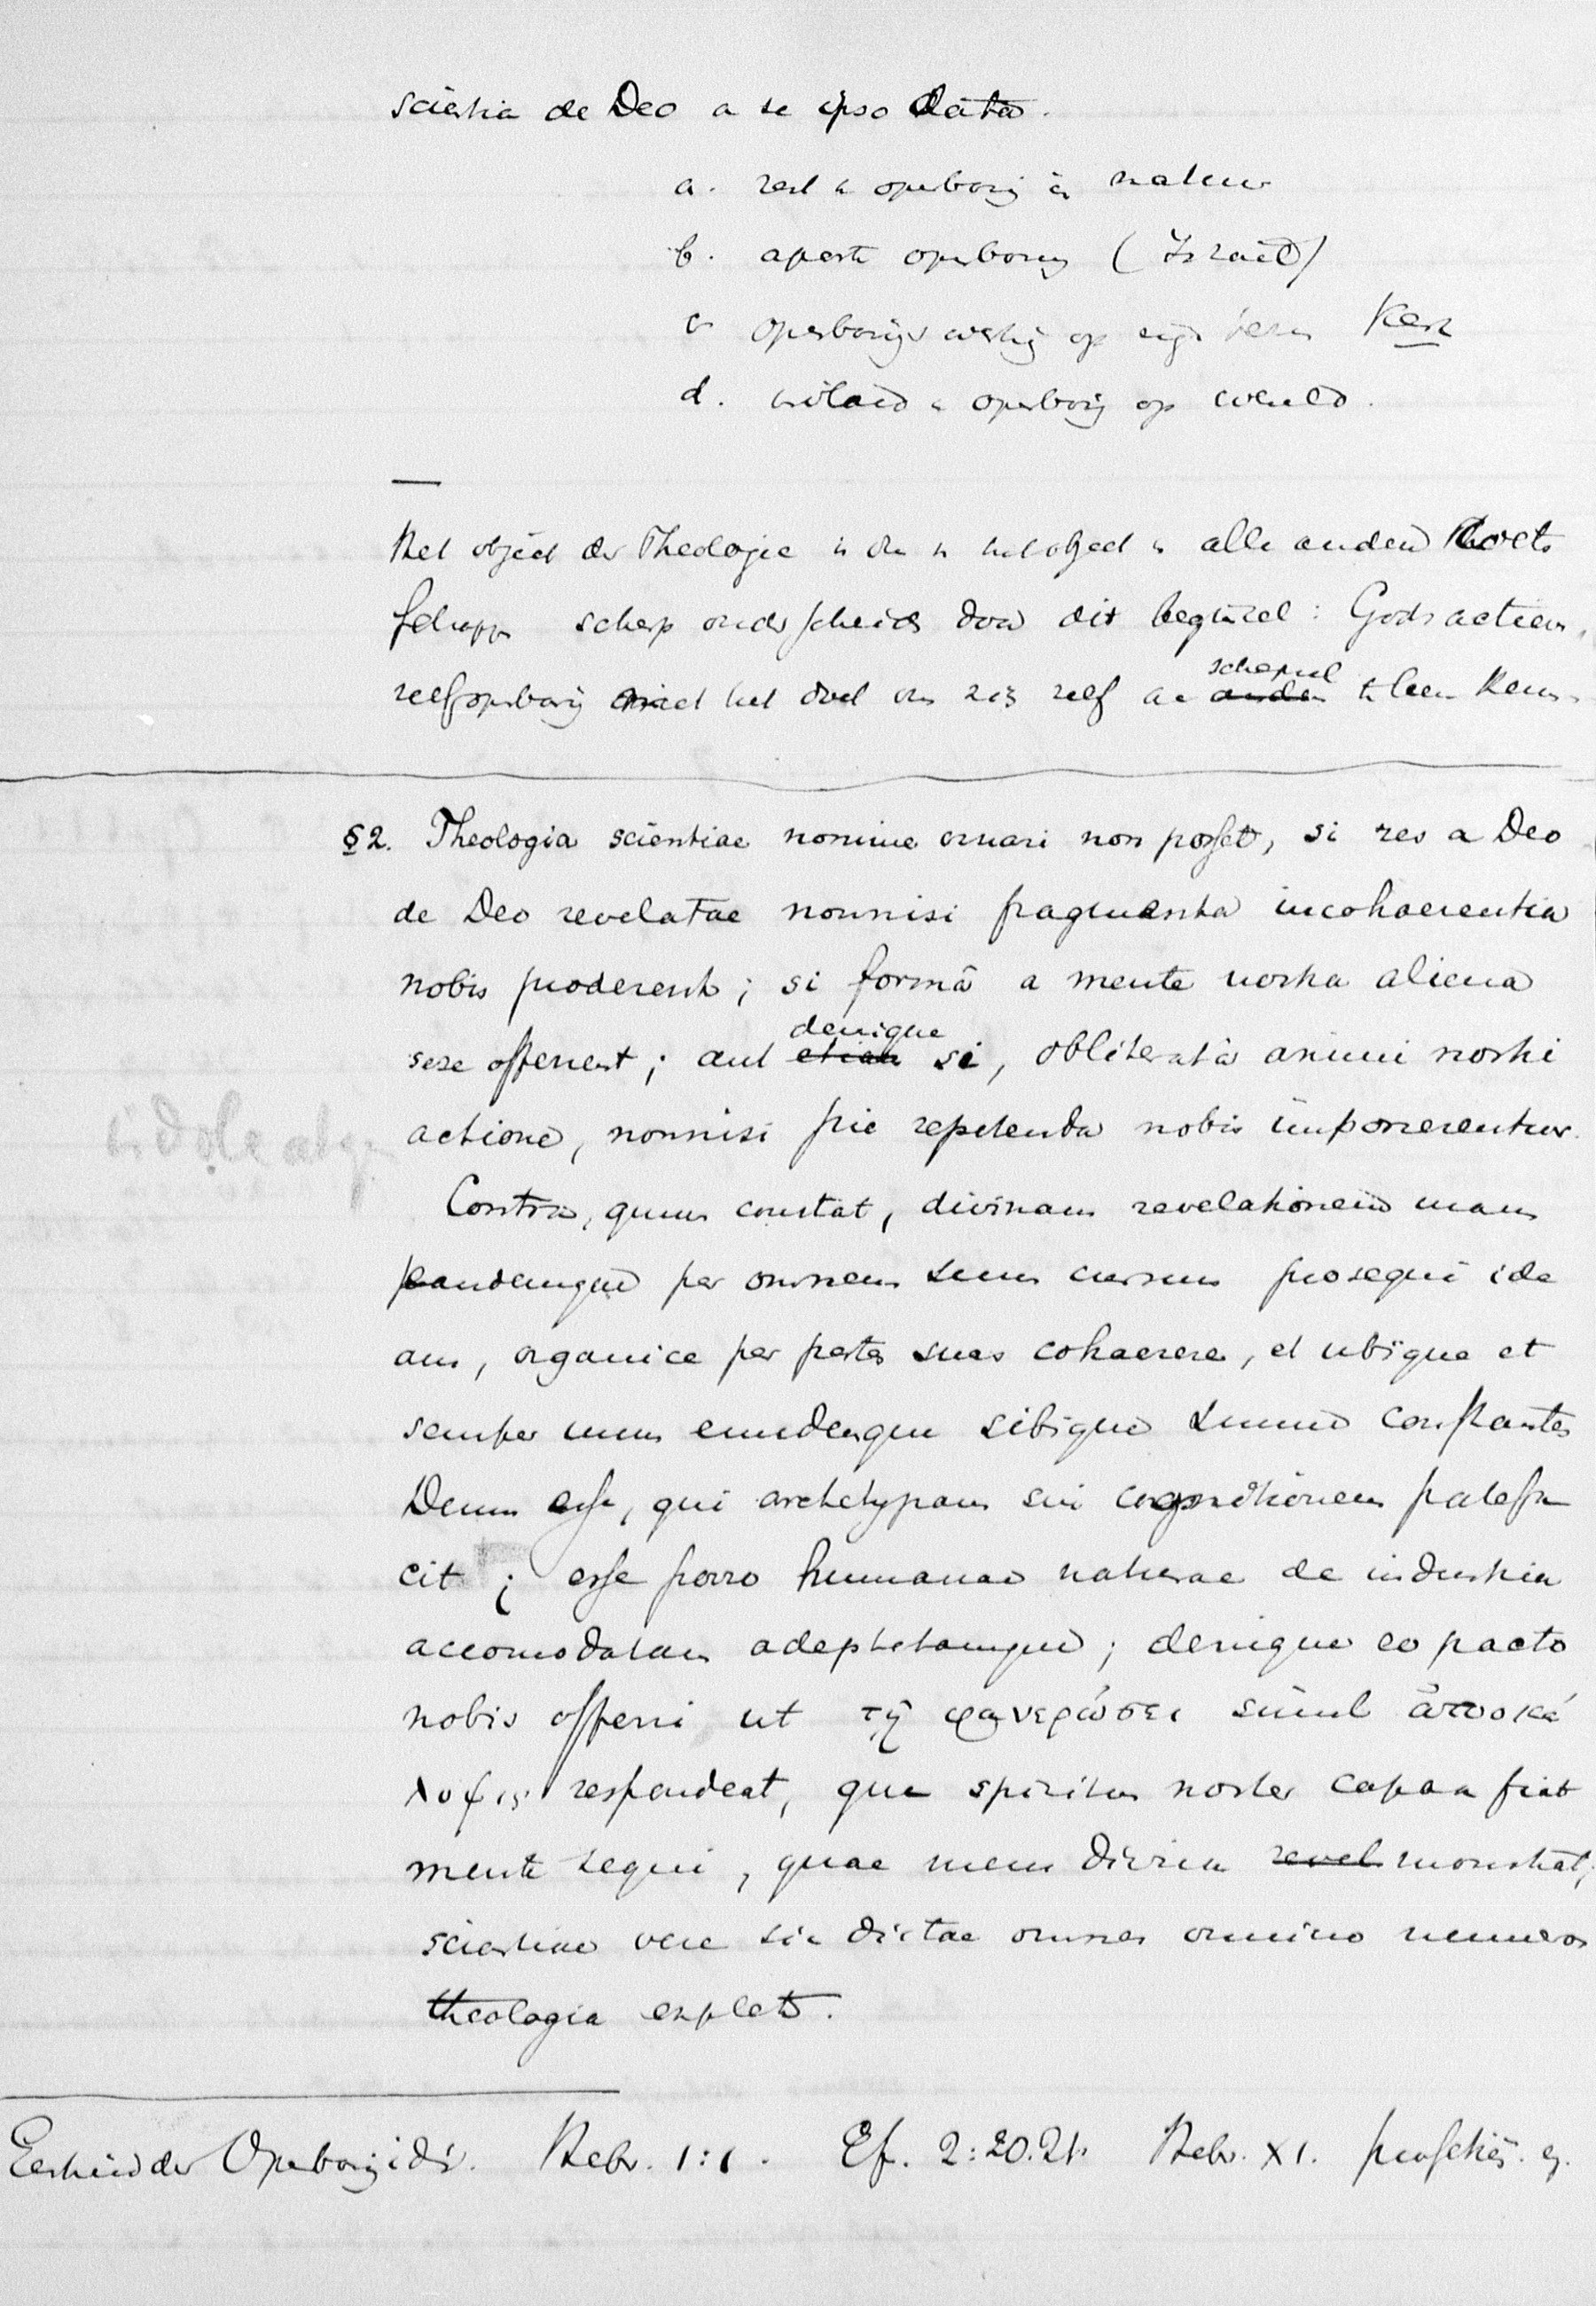 scientia de Deo a se ipso data.
a. openbaring in natuur
b. aparte openbaring (Israël)
c openbarings op Kerk
d. invloed v openbaring op wereld.
Het object der Theologie is het object v alle andere Wets
schapp scherp onderscheiden door dit beginsel: Gods actieve
zelfopenbaring met het doel om zich zelf aan anden schepsel te leeren kennen.
§2. Theologia scientiae nomine ornari non posset, si res a Deo
de Deo revelatae nonnisi fragmenta incohaerentia
nobis proderent; si formâ a mente nostra aliena
sese offerrent; aut etiam denique si, obliterata animi nostri
actione, nonnisi pie repetenda nobis imponerentur.
Contra, quum constat, divinam revelationem unam
eandemque per omnem suum cursum prosequi ide
am, organice per partes suas cohaerere, et ubique et
semper unum eundemque sibique summe constantem
Deum esse, qui archetypam sui cognitionem patefa
cit; esse porro humanae naturae de industria
accomodatam adaptatamque; denique eo pacto
nobis offerri ut τῇ φανερώσει simul ἀποκά
λυψις respondeat, qua spiritus noster capax fiat
mente sequi, quae mens divina revel monstrat;
scientiae vere sic dictae omnes omnino numeros
theologia explet.
Eenheid der Openbaring idé. Hebr. 1:1. Ef. 2:20.21. Hebr. XI. profetiën. ez.